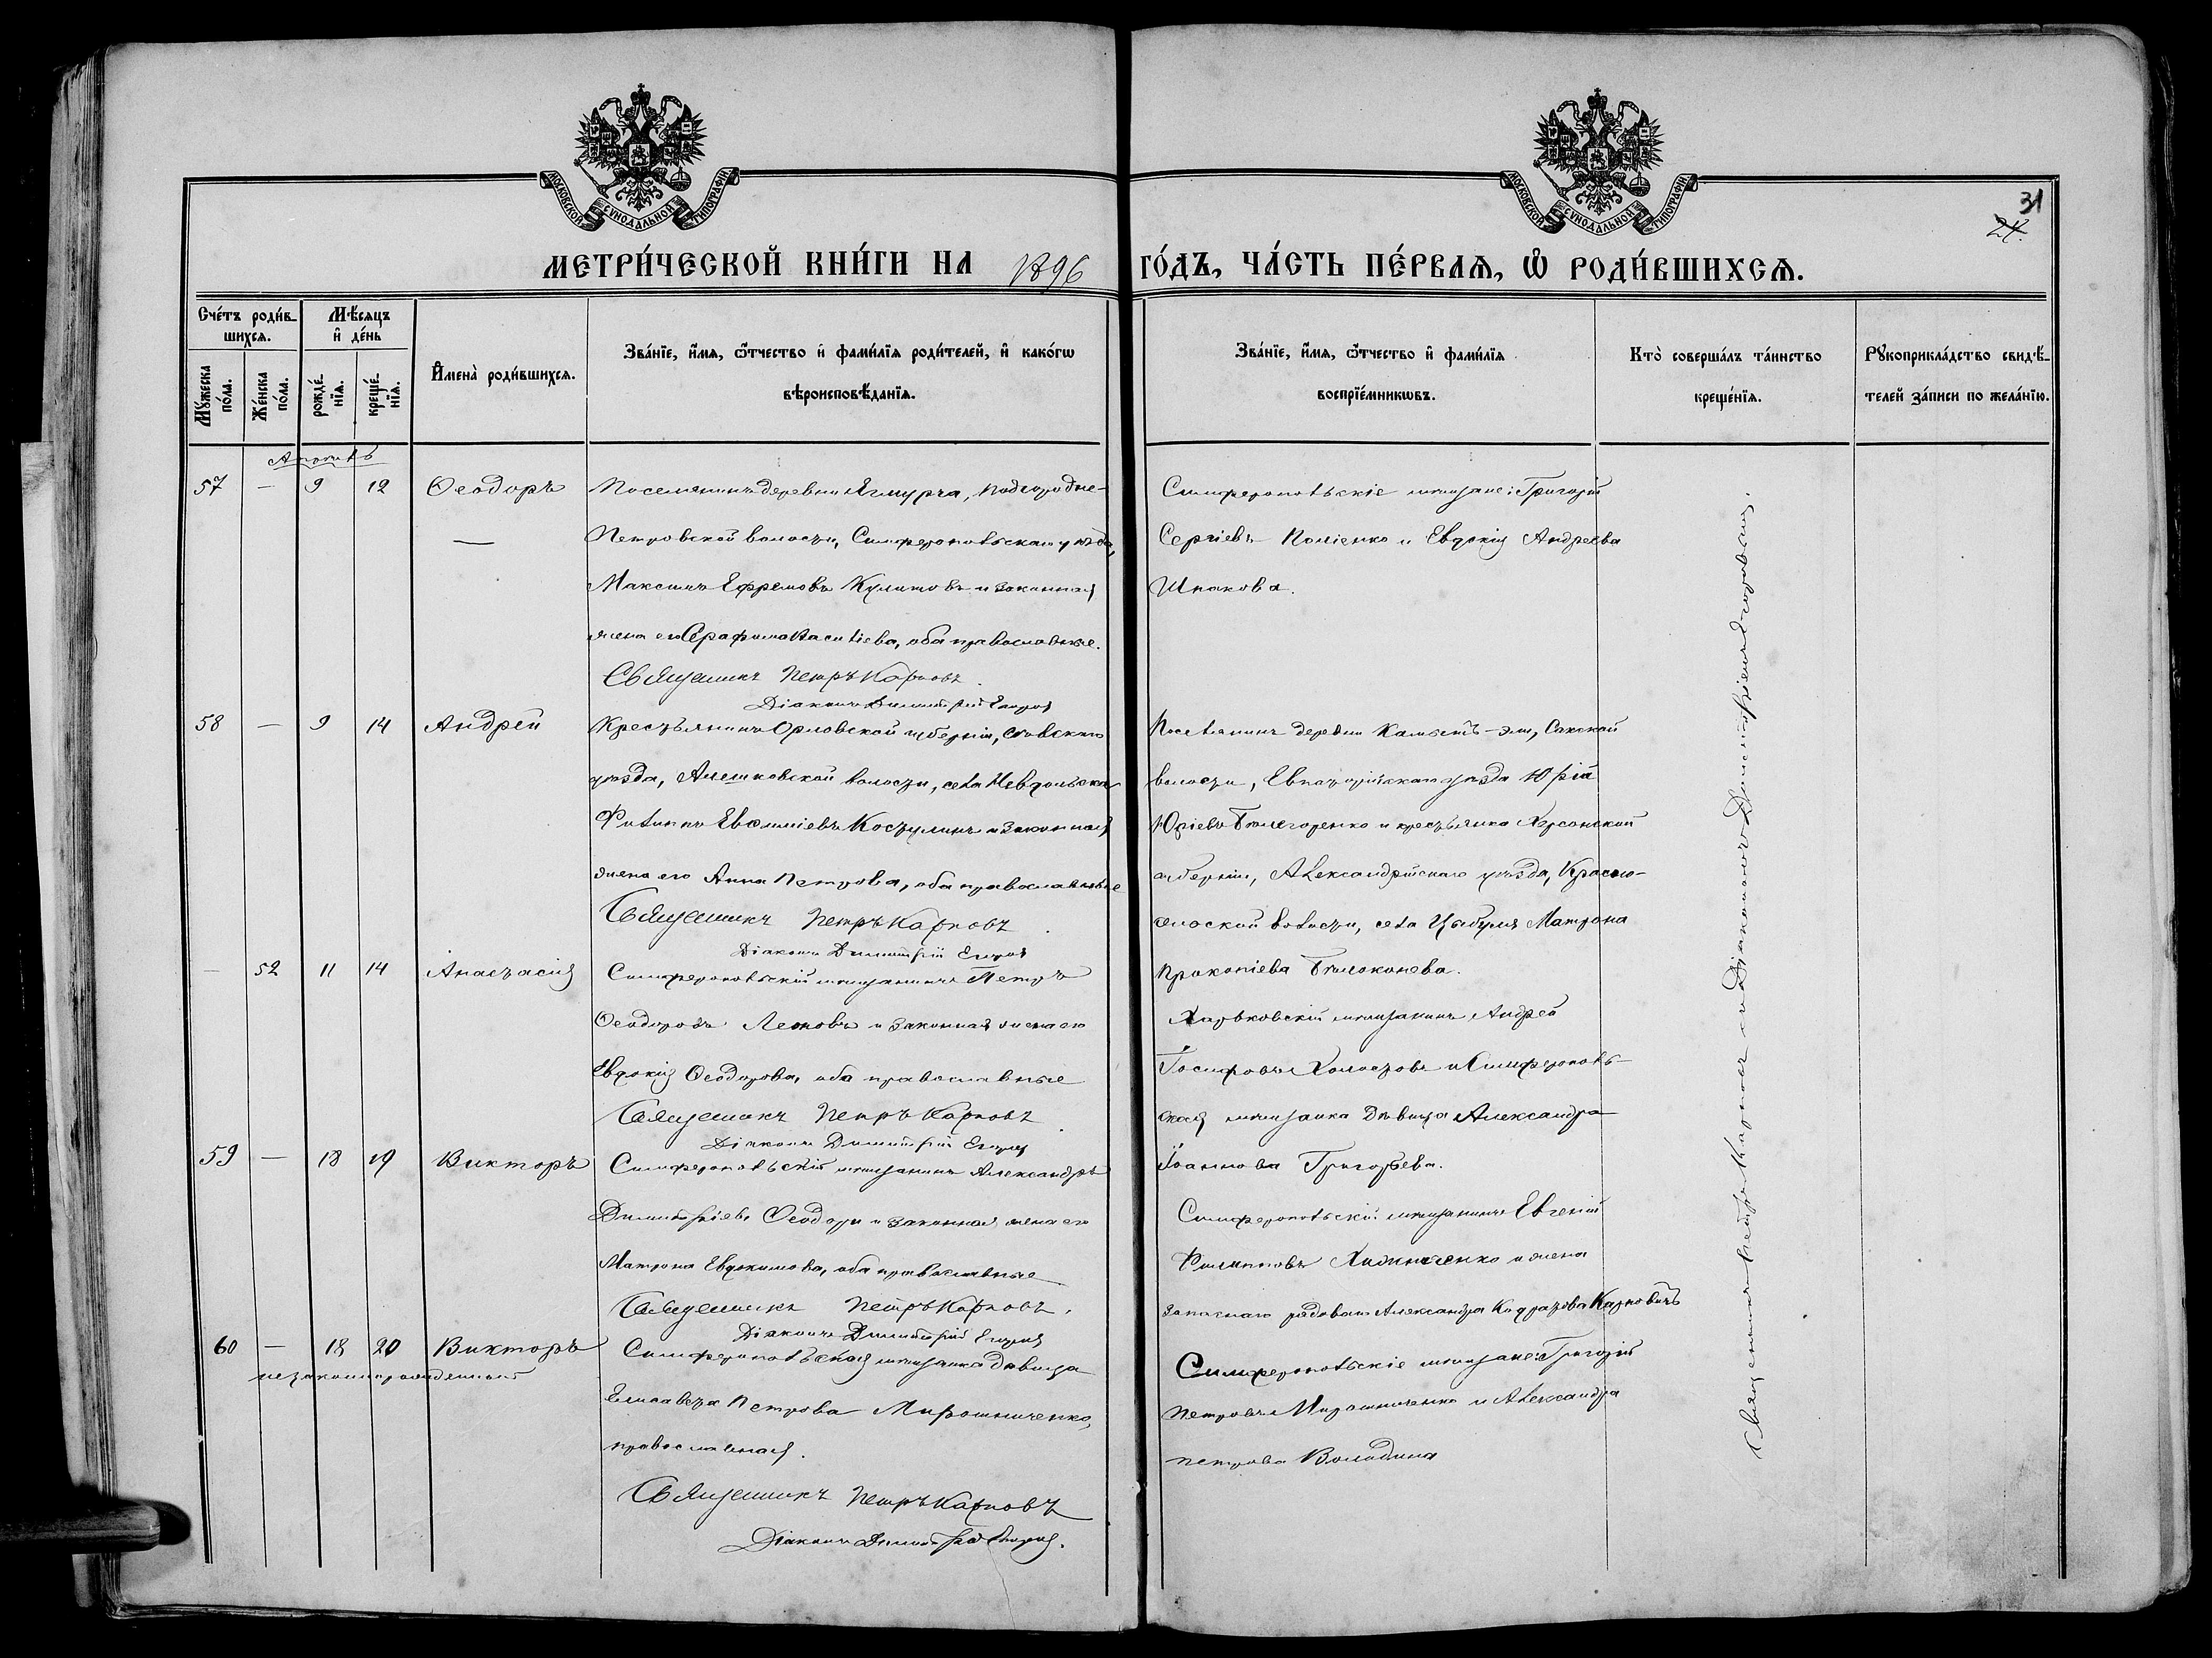 МОСКОВСКОЙ СѴНОДАЛЬНОЙ ТИПОГРАФІИ
МОСКОВСКОЙ СѴНОДАЛЬНОЙ ТИПОГРАФІИ
31
24.
МЕТРИ́ЧЕСКОЙ КНИ́ГИ НА 1896 ГО́ДЪ, ЧА́СТЬ ПЕ́РВАѦ, Ѽ РОДИ́ВШИХСѦ.
Сче́тъ роди́вшихсѧ.
Мꙋ́жеска по́ла.
Же́нска по́ла.
Мѣ́сѧцъ и҆ де́нь
рожде́нїѧ.
креще́нїѧ.
И҆мена̀ роди́вшихсѧ.
Зва́нїе, и҆́мѧ, ѻ҆́тчество и҆ фами́лїѧ роди́телей, и҆ како́гѡ
вѣроисповѣ́данїѧ.
Зва́нїе, и҆́мѧ, ѻ҆́тчество и҆ фами́лїѧ
воспрїе́мникѡвъ.
Кто̀ соверша́лъ та́инство
креще́нїѧ.
Рꙋкоприкла́дство свидѣ́-
телей за́писи по жела́нїю.
Апрѣль
57 — 9 12 Ѳеодоръ
Поселянинъ деревни Ягмурча, Подгородне-
Петровской волости, Симферопольскаго уѣзда,
Максимъ Ефремовъ Кулитовъ и законная
жена его Серафима Васильева, оба православные.
Священникъ Петръ Карповъ.
Діаконъ Димитрій
Симферопольскіе мѣщане: Григорій
Сергіевъ и Евдокія Андреева
Шпакова.
58 — 9 14 Андрей
Крестьянинъ Орловской губерніи, Сѣвскаго
уѣзда, Алешковской волости, села Невдольска
Филиппъ Евѳиміевъ Костулинъ и законная
жена его Анна Петрова, оба православные
Священникъ Петръ Карповъ.
Діаконъ Димитрій
Поселянинъ деревни Сакской
волости, Евпаторійскаго уѣзда Юрій
Юріевъ и крестьянка Херсонской
губерніи, Александрійскаго уѣзда, Красно-
волости, села Цыбуля Матрона
Прокопіева Бѣлоконева.
— 52 11 14 Анастасія
Симферопольскій мѣщанинъ Петръ
Ѳеодоровъ и законная жена его
Евдокія Ѳеодорова, оба православные
Священникъ Петръ Карповъ.
Діаконъ Димитрій
Харьковскій мѣщанинъ Андрей
Іосифовъ Холостовъ и Симферополь-
ская мѣщанка дѣвица Александра
Іоаннова Григорьева.
59 — 18 19 Викторъ
Симферопольскій мѣщанинъ Александръ
Димитріевъ Ѳеодори и законная жена его
Матрона Евдокимова, оба православные
Священникъ Петръ Карповъ.
Діаконъ Димитрій
Симферопольскій мѣщанинъ Евгеній
Филипповъ и жена
запаснаго рядоваго Александра Карповичъ
60 — 18 20 Викторъ
незаконнорожденный
Симферопольская мѣщанка дѣвица
Елисавета Петрова Мирошниченко,
православная.
Священникъ Петръ Карповъ
Діаконъ Димитрій
Симферопольскіе мѣщане: Григорій
Петровъ Мирошниченко и Александра
Петрова Володина
Священникъ Петръ Карповъ съ Діакономъ Димитріемъ